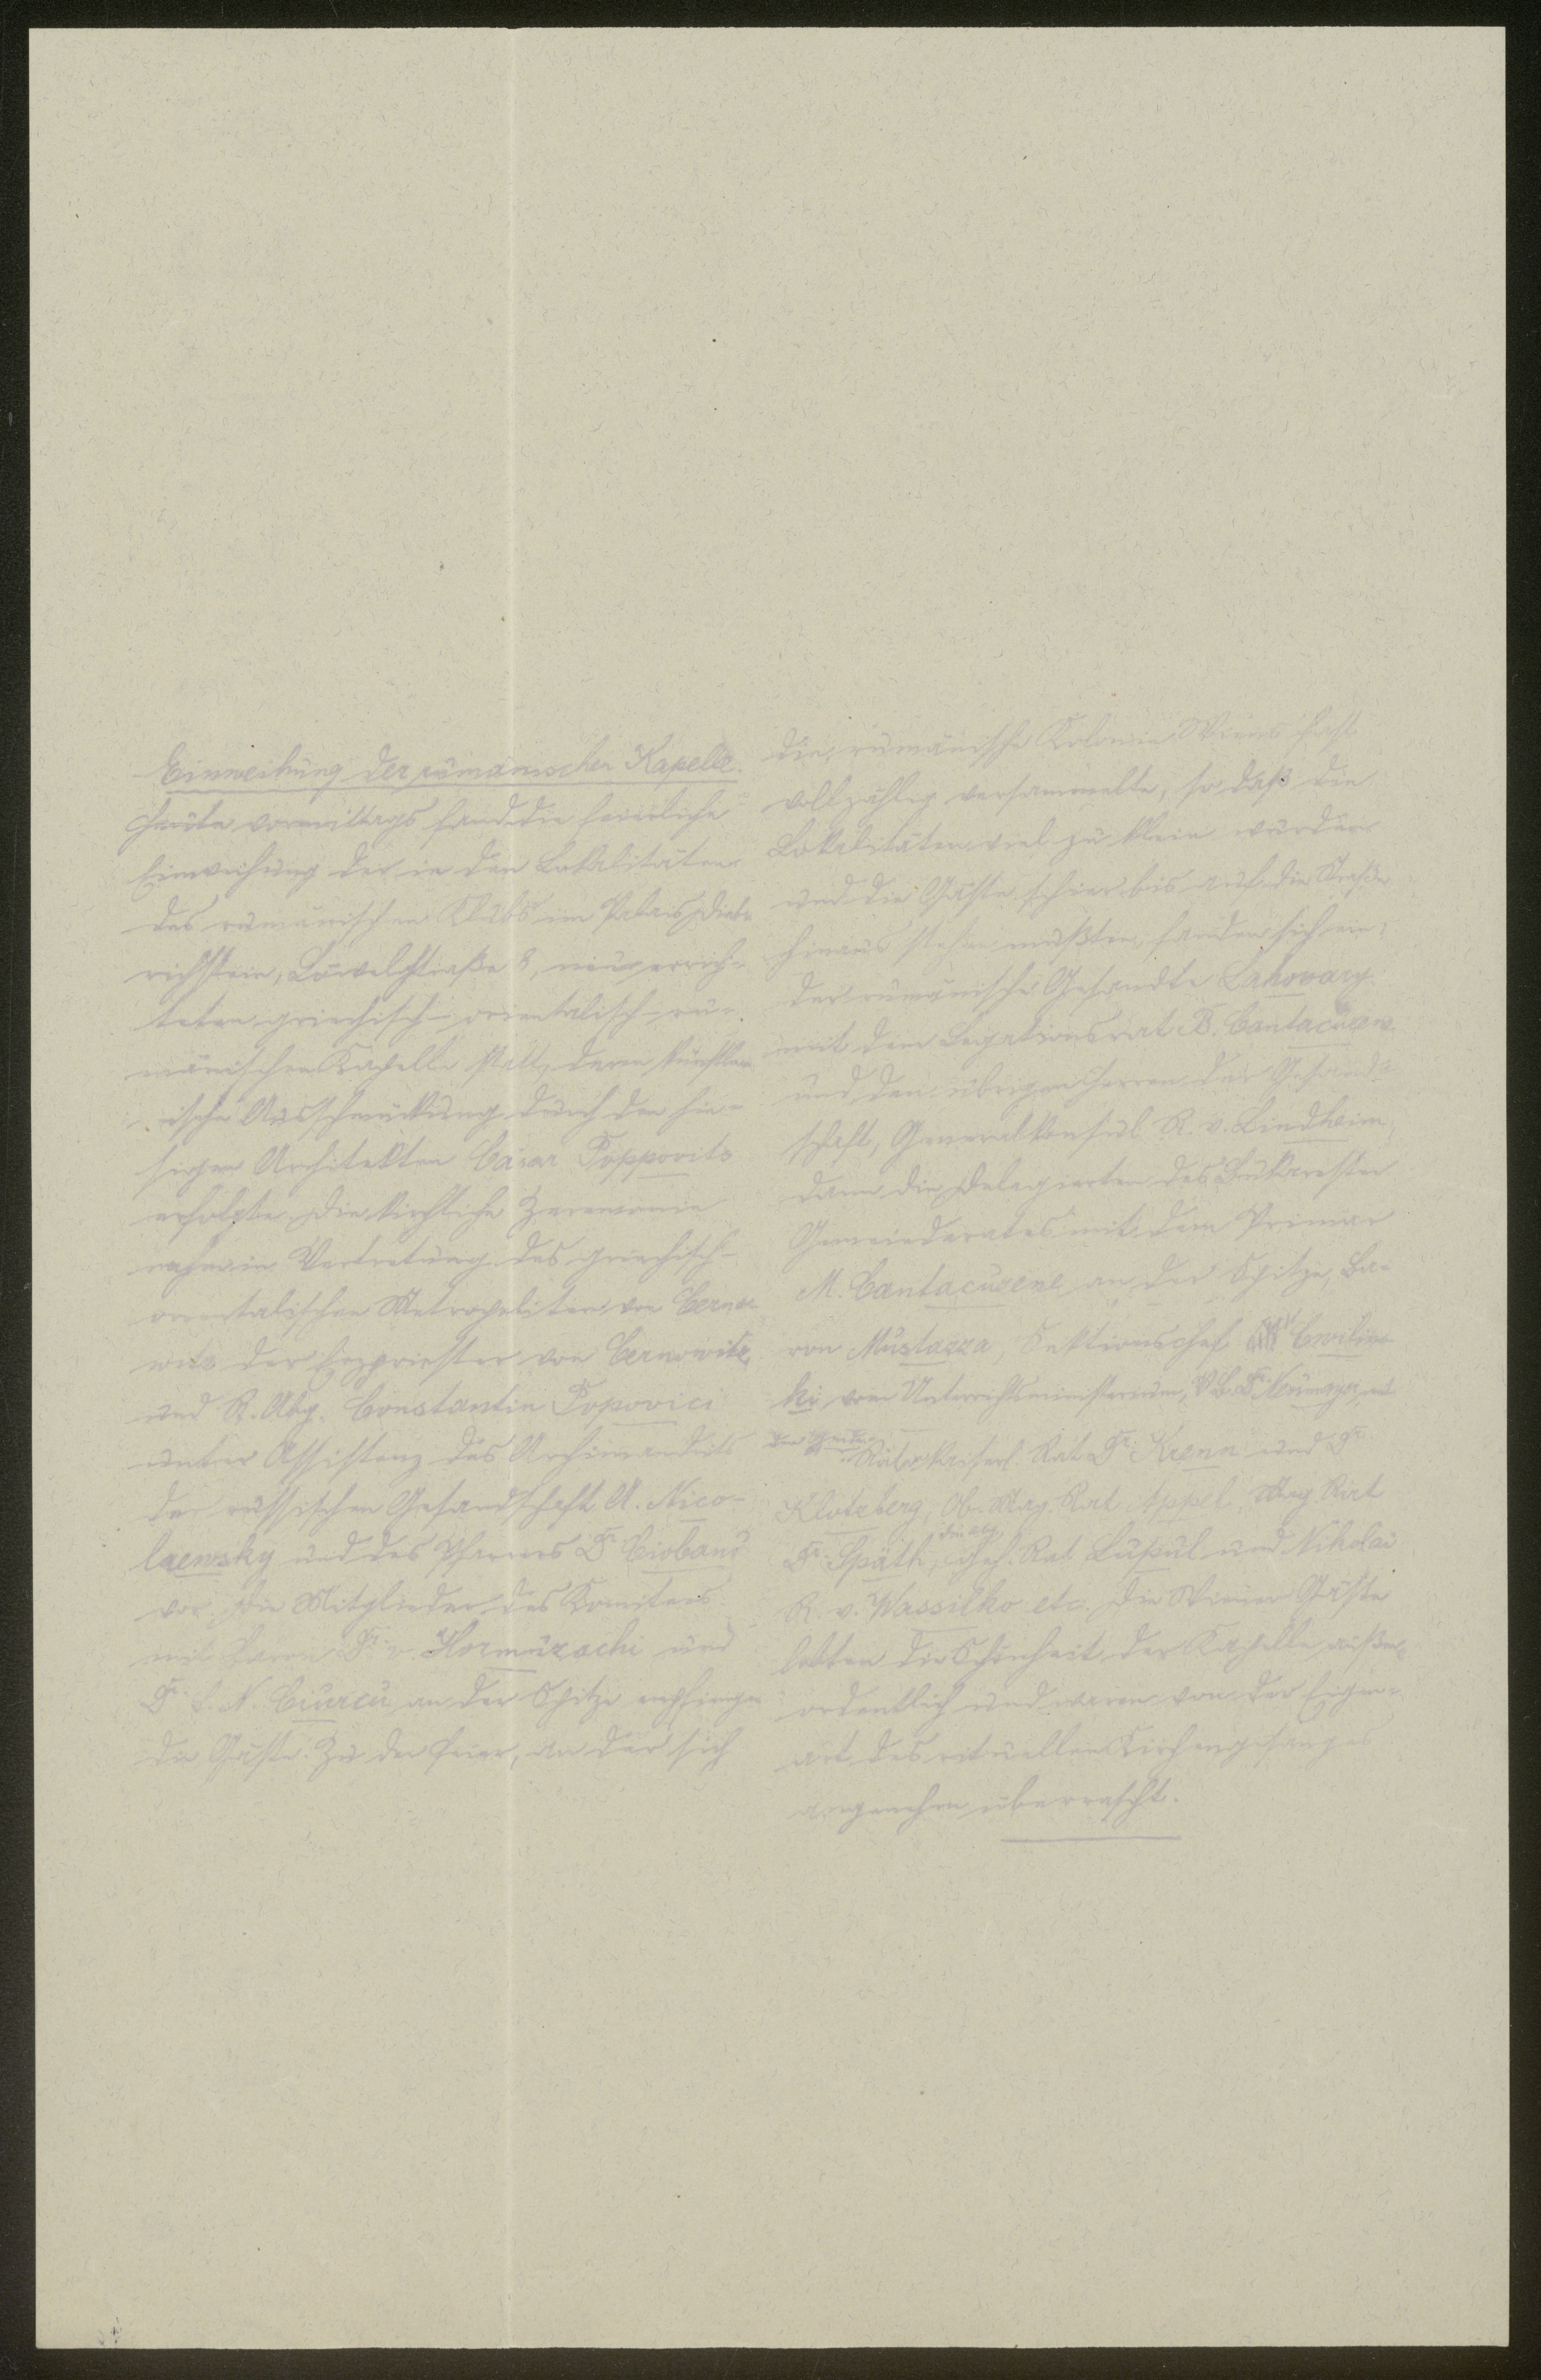 Einweihung der rumänischen Kapelle.
Heute vormittags fand die feierliche
Einweihung der in den Lokalitäten
des rumänischen Klubs im Palais Diet-
richstein, Löwelstraße 8, neuerrich-
teten griechisch-orientalisch-ru-
mänischen Kapelle statt, deren künstler-
ische Ausschmückung durch den hie-
sigen Architekten Cäsar Poppovits
erfolgte. Die kirchliche Zeremonie
nahm in Vertretung des griechisch-
orientalischen Metropoliten von Czerno-
witz der Erzpriester von Czernowitz
und R. Abg. Constantin Popovici
unter Assistenz des Archimandrits
der russischen Gesandtschaft A. Nico-
laewsky und des Pfarrers Dr. Cioban
vor. Die Mitglieder des Komitees
mit Baron Dr. v. Hormuzachi und
Dr. S. N. Ciurcu an der Spitze empfingen
die Gäste. Zu der Feier, an der sich
die rumänische Kolonie Wiens fast
vollzählig versammelte, so daß die
Lokalitäten viel zu klein wurden
und die Gäste schier bis auf die Straße
hinaus stehen mußten, fanden sich ein:
der rumänische Gesandte Lahovary
mit dem Legationsrat B. Cantacuzene
und den übrigen Herren der Gesand-
schaft, Generalkonsul R. v. Lindheim,
dann die Delegierten des Bukarester
Gemeinderates mit dem Primar
M. Cantacuzene an der Spitze, Ba-
ron Mustazza, Sektionschef Cwiklins-
ki vom Unterrichtsministerium, V.B. Dr. Neumayer, mit
den Räten kaiserl. Rat Dr. Krenn und Dr.
Klotzberg, Ob. Mag. Rat Appel, Mag. Rat
Dr. Späth, die Abg. Geh. Rat Lupul und Nikolai
R. v. Wassilko etc. Die Wiener Gäste
lobten die Schönheit der Kapelle außer-
ordentlich und waren von der Eigen-
art des rituellen Kirchengesanges
angenehm überrascht.